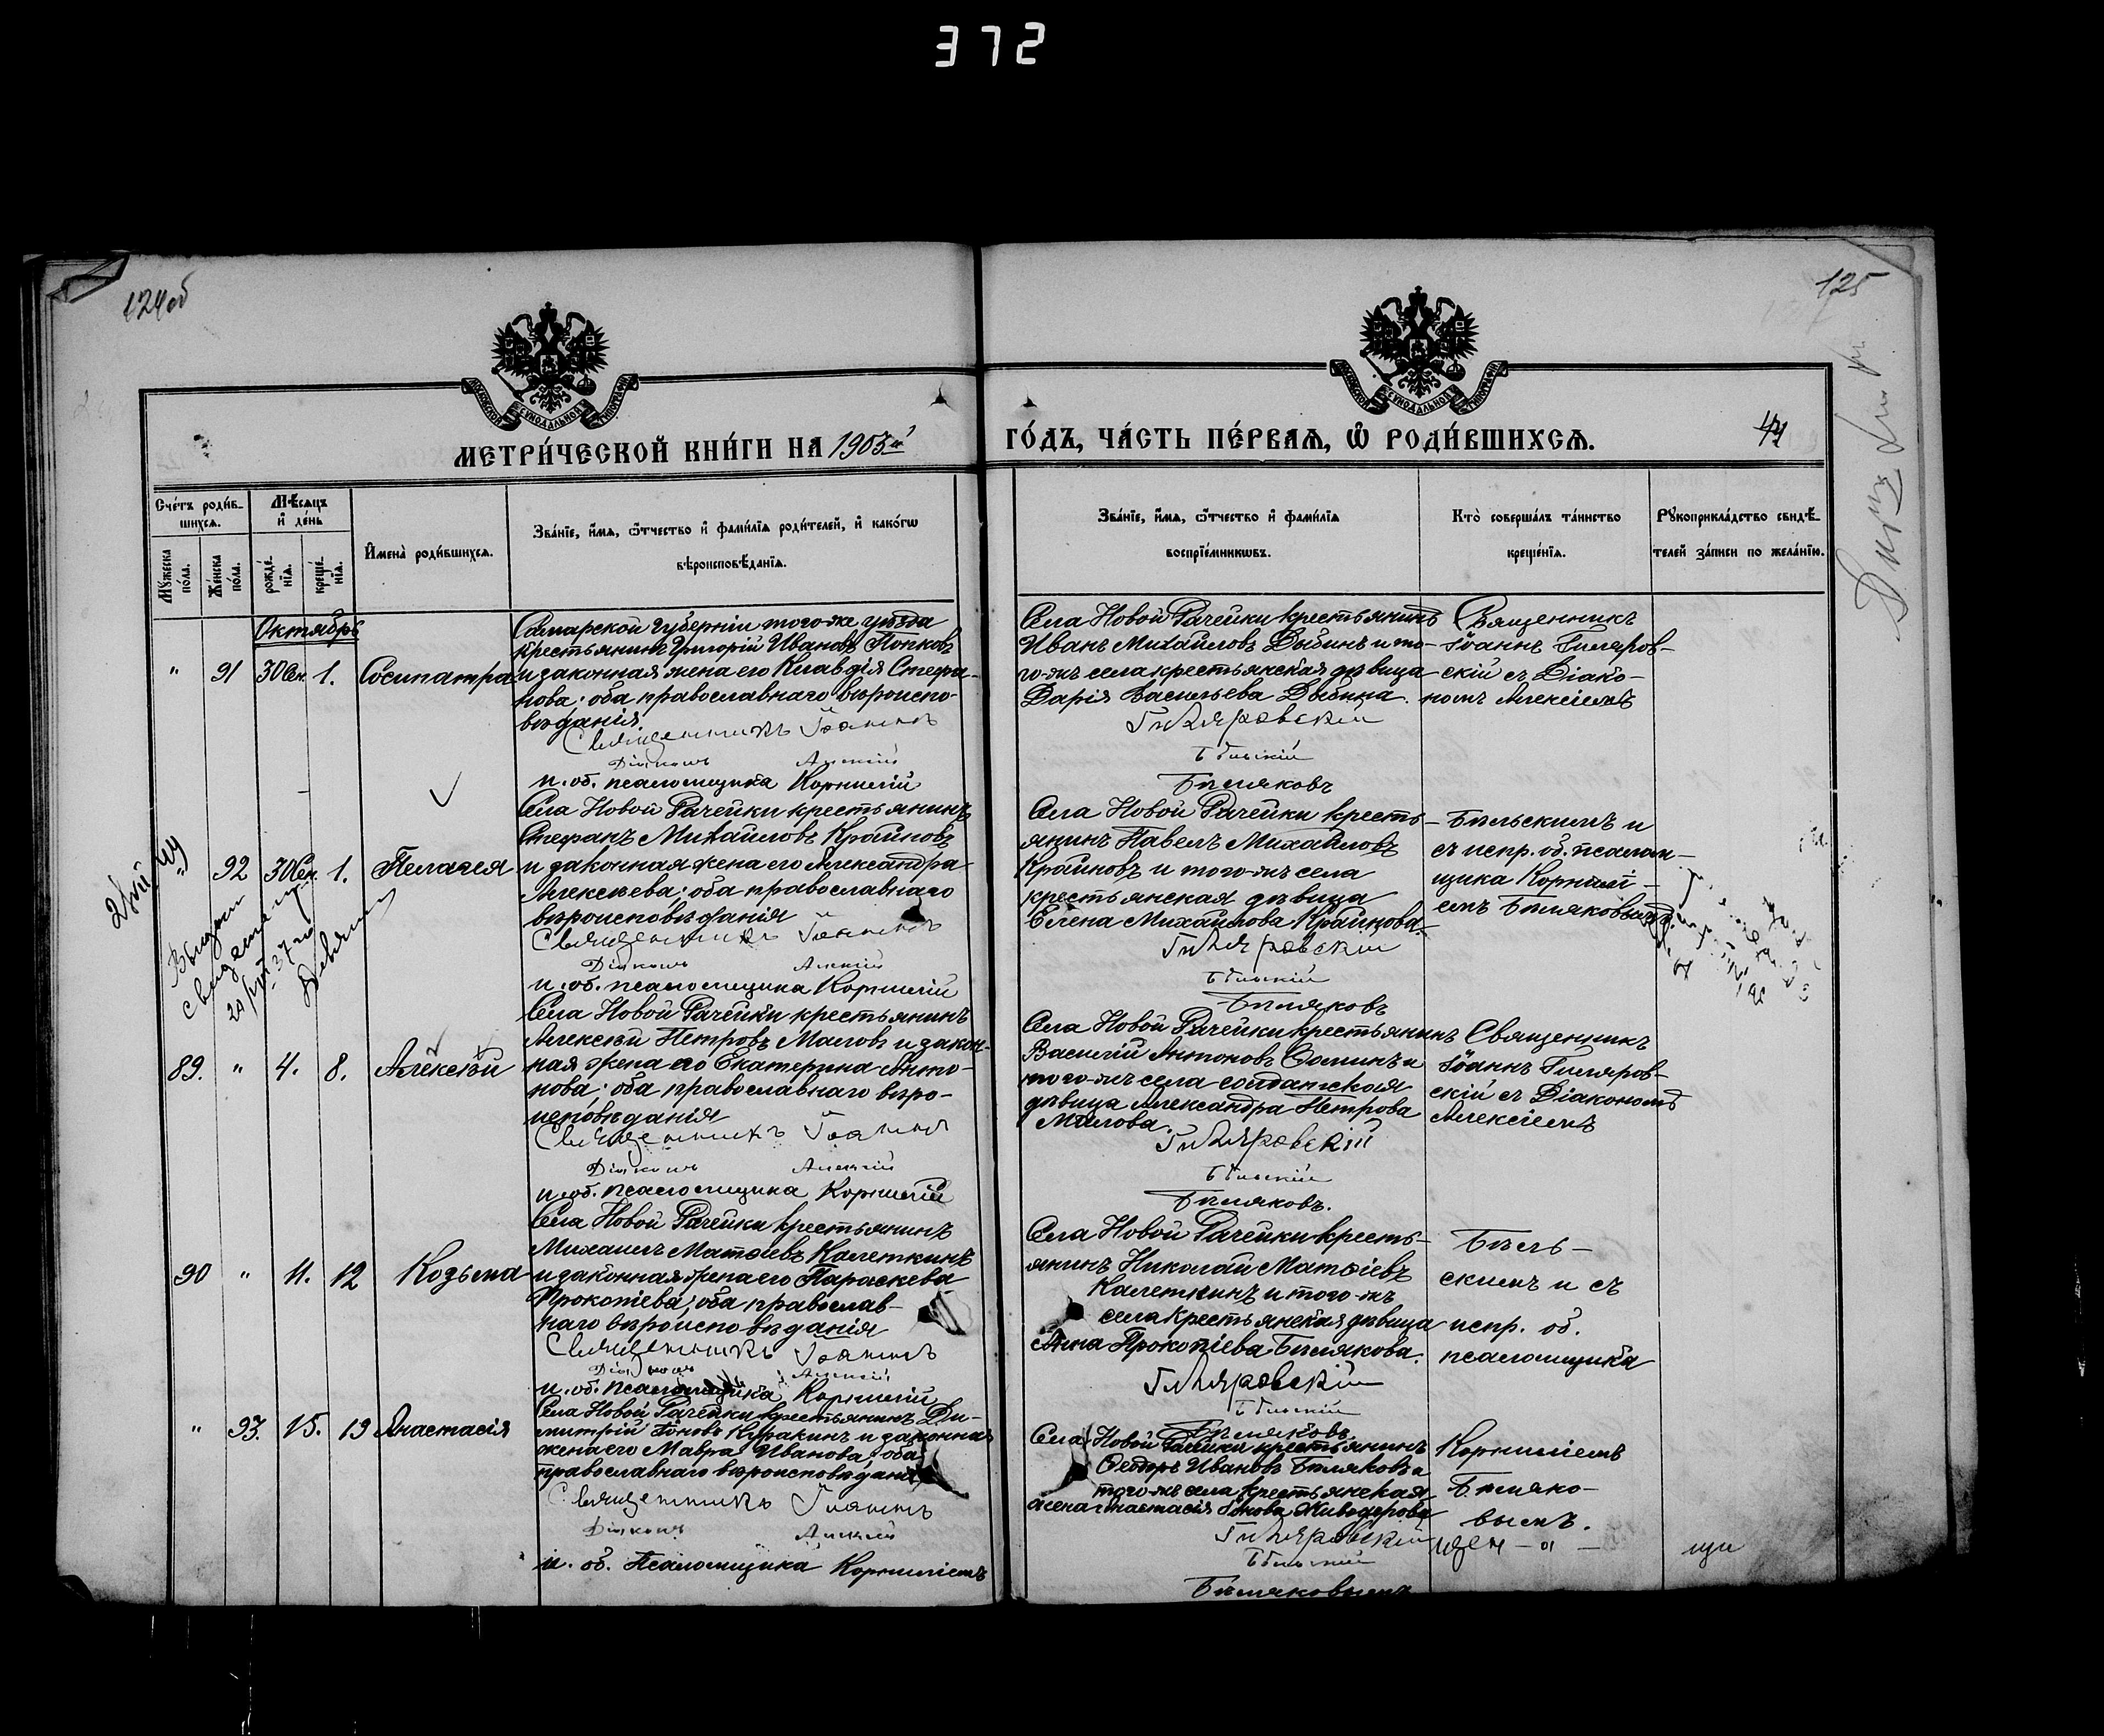 372
124об
125
МЕТРИ́ЧЕСКОЙ КНИ́ГИ НА 1903й
ГО́ДЪ, ЧА́СТЬ ПЕ́РВАѦ, Ѿ РОДИ́ВШИХСѦ.
44
Сче́тъ роди́в-
шихсѧ.
Мѣ́сѧцъ
и҆ де́нь
Мꙋ́жеска
по́ла.
Же́нска
по́ла.
рожде́-
нїѧ.
креще́-
нїѧ.
И҆мена̀ роди́вшихсѧ.
Зва́нїе, и҆́мѧ, ѻ҆́тчество и҆ фами́лїѧ роди́телей, и҆ како́гѡ
вѣроисповѣ́данїѧ.
Зва́нїе, и҆́мѧ, ѻ҆́тчество и҆ фами́лїѧ
воспрїе́мникѡвъ.
Кто̀ соверша́лъ та́инство
креще́нїѧ.
Рꙋкоприкла́дство свидѣ́-
телей за́писи по жела́нїю.
Октябрь
" 91 30 Сен. 1. Сосипатра
Самарской губерніи того-же уѣзда
крестьянинъ Григорій Ивановъ Попковъ
и законная жена его Клавдія Стефа-
нова; оба православнаго вѣроиспо-
вѣданія.
Священникъ Іоаннъ
Діаконъ Алексій
и. об. псаломщика Корнилій
Села Новой Рачейки крестьянинъ
Иванъ Михайловъ Дыбинъ и то-
го-жъ села крестьянская дѣвица
Дарія Васильева Дыбина.
Гиляровскій
Бѣльскій
Бѣляковъ
Священникъ
Іоаннъ Гиляров-
скій съ Діако-
номъ Алексіемъ
" 92 30 Сен. 1. Пелагея
Села Новой Рачейки крестьянинъ
Стефанъ Михайловъ Крайновъ
и законная жена его Александра
Алексѣева; оба православнаго
вѣроисповѣданія
Священникъ Іоаннъ
Діаконъ Алексій
и. об. псаломщика Корнилій
Села Новой Рачейки кресть-
янинъ Павелъ Михайловъ
Крайновъ и того-жъ села
крестьянская дѣвица
Елена Михайлова Крайнова.
Гиляровскій
Бѣльскій
Бѣляковъ
Бѣльскимъ и
съ испр. об. псалом-
щика Корнилі-
емъ Бѣляковымъ.
Выдан
89. " 4. 8. Алексѣй
Села Новой Рачейки крестьянинъ
Алексѣй Петровъ Маловъ и закон-
ная жена его Екатерина Анто-
нова; оба православнаго вѣро-
исповѣданія
Священникъ Іоаннъ
Діаконъ Алексій
и. об. псаломщика Корнилій
Села Новой Рачейки крестьянинъ
Василій Антоновъ Ѳоминъ и
того-жъ села солдатская
дѣвица Александра Петрова
Малова.
Гиляровскій
Бѣльскій
Бѣляковъ.
Священникъ
Іоаннъ Гиляров-
скій съ Діакономъ
Алексіемъ
90 " 11. 12 Козьма
Села Новой Рачейки крестьянинъ
Михаилъ Матѳіевъ Калеткинъ
и законная жена его Параскева
Прокопіева; оба православ-
наго вѣроисповѣданія
Священникъ Іоаннъ
Діаконъ Алексій
и. об. псаломщика Корнилій
Села Новой Рачейки кресть-
янинъ Николай Матѳіевъ
Калеткинъ и того-жъ
села крестьянская дѣвица
Анна Прокопіева Бѣлякова.
Гиляровскій
Бѣльскій
Бѣляковъ.
Бѣль-
скимъ и съ
испр. об.
псаломщика
" 93. 15. 19 Анастасія
Села Новой Рачейки крестьянинъ Ди-
митрій Іоновъ Куракинъ и законная
жена его Мавра Иванова; оба
православнаго вѣроисповѣданія
Священникъ Іоаннъ
Діаконъ Алексій
и. об. Псаломщика Корниліемъ
Села Новой Рачейки крестьянинъ
Ѳеодоръ Ивановъ Бѣляковъ и
того-же села крестьянская
жена Анастасія Іонова Живодерова
Гиляровскій
Бѣльскій
Бѣляковымъ
Корниліемъ
Бѣляко-
вымъ.